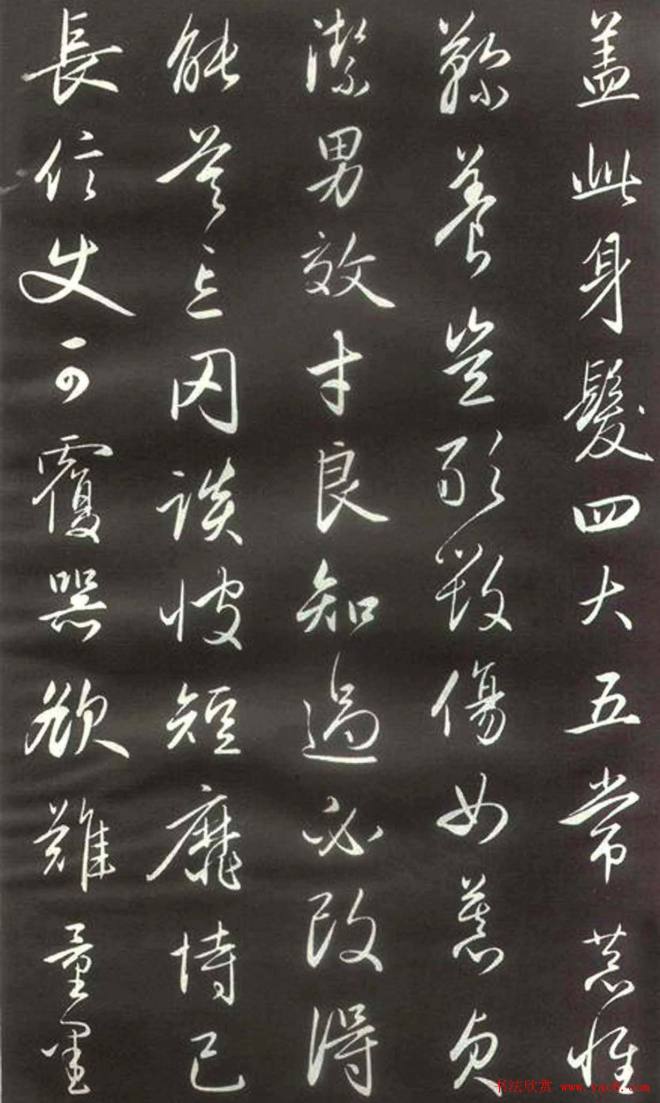 盖此身髮四大五常恭惟
鞠養豈敢毀傷女慕貞
潔男效才良知過必改得
能莫忘罔談彼短靡恃己
長信使可覆器欲難量墨
书法欣赏 www.yac8.com